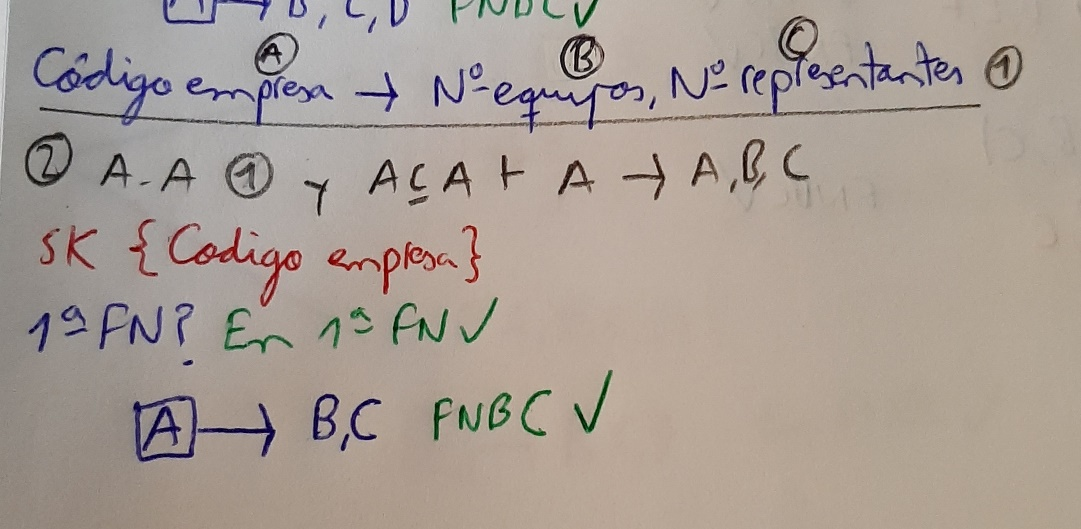 A → B, C, D FNBC ✓
A B C
Código empresa → Nº equipos, Nº representantes ①
② A.A ① y A ⊆ A ⊢ A → A, B, C
SK {Codigo empresa}
1ª FN? En 1ª FN ✓
A → B, C FNBC ✓